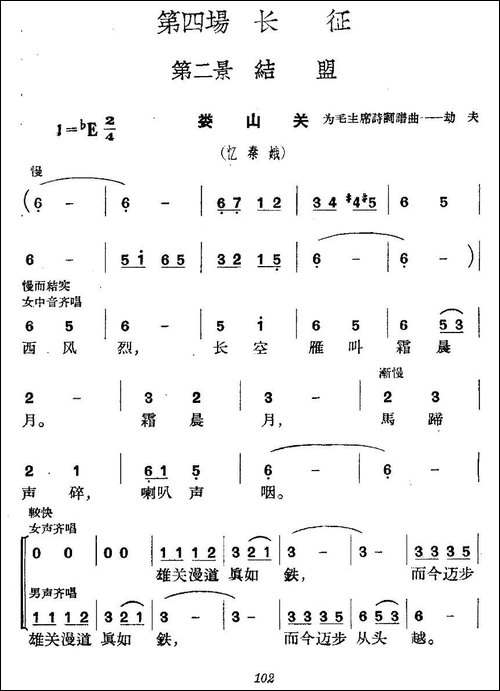 第四場 长 征
第二景 結 盟
1=♭E 2/4
娄 山 关 为毛主席詩詞譜曲——劫 夫
(忆秦娥)
慢
(6̣ - | 6̣ - | 6̣ 7̣ 1 2 | 3 4 #4 #5 | 6 5 |
6 - | 5 i 6 5 | 3 2 1 5̣ | 6̣ - | 6̣ -)
慢而結实
女中音齐唱
6 5 | 6 - | 5 i | 6 5 | 6 5 3 |
西 风 烈， 长 空 雁 叫 霜 晨
漸慢
2 - | 3 2 | 3 - | 2 3 |
月。 霜 晨 月， 馬 蹄
2 1 | 6̣ 1 5̣ | 6̣ - | 6̣ - |
声 碎， 喇叭 声 咽。
較快
女声齐唱
0 0 | 0 0 | 1 1 1 2 | 3 2 1 | 3 - | 3 - | 3 3 3 5 |
雄关漫道 眞如 鉄， 而今迈步
男声齐唱
1 1 1 2 | 3 2 1 | 3 - | 3 - | 3 3 3 5 | 6 5 3 | 6 - |
雄关漫道 眞如 鉄， 而今迈步 从头 越。
102